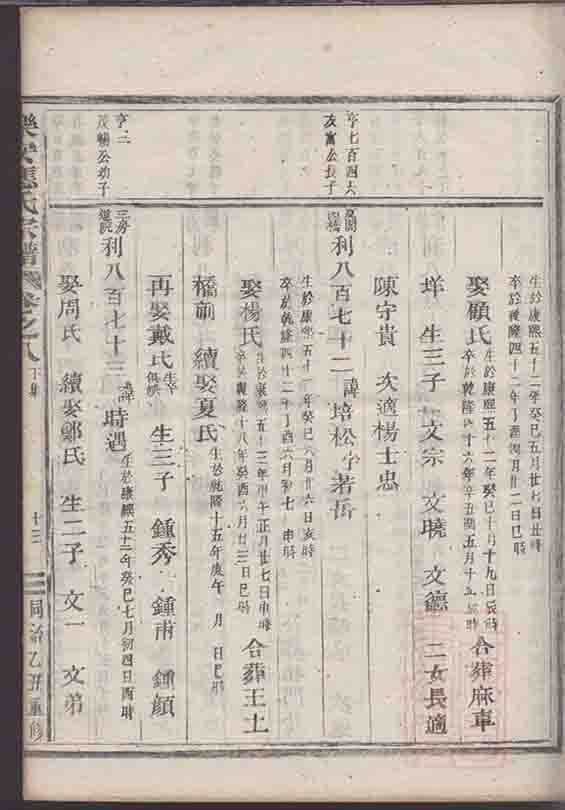 生於康熙五十二年癸巳五月廿七日丑時
卒於乾隆四十二年丁酉四月廿二日巳時
娶顧氏
生於康熙五十二年癸巳十月十九日辰時
卒於乾隆四十六年辛丑閏五月十五日時
合葬麻車
垟 生三子 文宗 文曉 文德 二女長適
陳守貴 次適楊士忠
亨七百四大
友富公長子
利八百七十二 諱培松字若岳
生於康熙五十二年癸巳六月廿六日亥時
卒於乾隆四十二年丁酉六月初七日申時
娶楊氏
生於康熙五十三年甲午正月廿七日申時
卒於乾隆十八年癸酉六月廿三日巳時
合葬王土
橋前 續娶夏氏
生於乾隆十五年庚午 月 日巳時
再娶戴氏
生三子 鍾秀 鍾甫 鍾顏
亨二
茂暢公幼子
三房
道院
利八百七十三 諱時遇
生於康熙五十二年癸巳七月初四日酉時
娶周氏 續娶鄭氏 生二子 文一 文弟
應氏宗譜 卷之八 下集
十三
同治乙丑重修